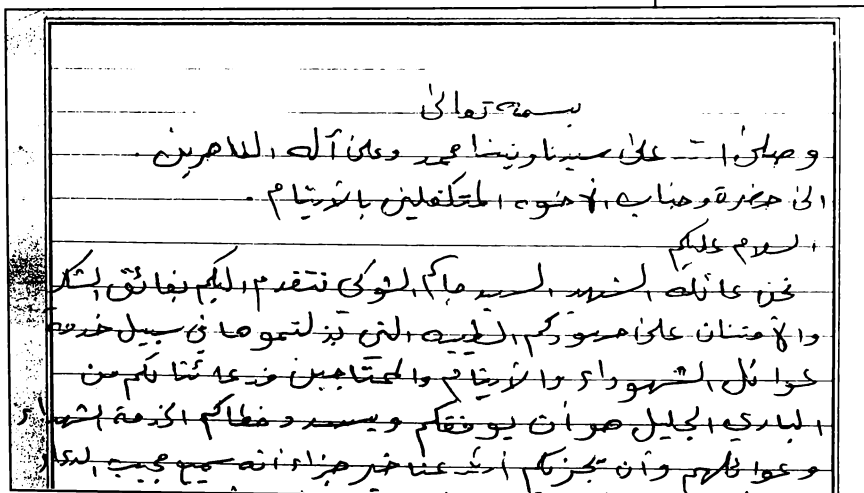 بسمه تعالى
وصلى الله على سيدنا ونبينا محمد وعلى آله الطاهرين .
الى حضرة وجناب الاخوه المتكفلين بالأيتام .
السلام عليكم
نحن عائلة الشهيد السيد جاكم الشوكي نتقدم اليكم بفائق الشكر
والأمتنان على جهودكم الطيبه التي بذلتموها في سبيل خدمة
عوائل الشهداء والأيتام والمحتاجين ودعائنا لكم من
الباري الجليل هو أن يوفقكم ويسدد خطاكم لخدمة الشهداء
وعوائلهم وأن يجزكم الله عنا خير جزاء أنه سميع مجيب الدعاء